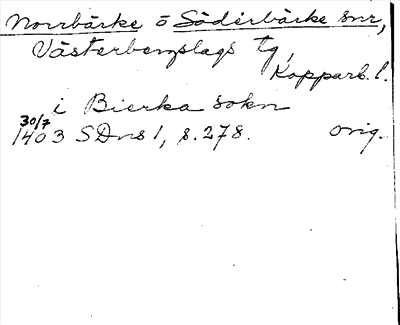 Norrbärke o Söderbärke snr,
Västerbergslags tg,
Kopparb. l.
i Bierka sokn
30/7
1403 SDns 1, s. 278. orig.